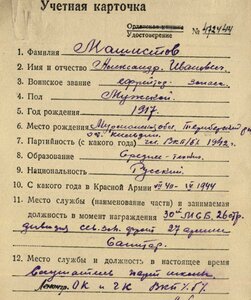 Учетная карточка
Удостоверение № 4724414
1. Фамилия Машистов
2. Имя и отчество Александр Иванович
3. Воинское звание ефрейтор запаса
4. Пол Мужской
5. Год рождения 1917
6. Место рождения
7. Партийность (с какого года) чл. ВКП(б) 1942 г.
8. Образование Среднее
9. Национальность Русский
10. С какого года в Красной Армии VII 40 - IV 1944
11. Место службы (наименование части) и занимаемая
должность в момент награждения
дивизия фронт 27 армии
Санитар
12. Место службы и должность в настоящее время
ОК и ГК ВКП(б)